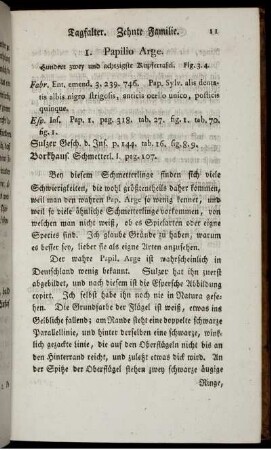 Tagfalter. Zehnte Familie. 11
1. Papilio Arge.
Hundert zwey und achtzigste Kupfertafel. Fig. 3. 4.
Fabr. Ent. emend. 3. 239. 746. Pap. Sylv. alis denta-
tis albis nigro strigosis, anticis ocello unico, posticis
quinque.
Esp. Ins. Pap. 1. pag. 318. tab. 27. fig. 1. tab. 70.
fig. 1.
Sulzer Gesch. d. Ins. p. 144. tab. 16, fig. 8. 9.
Borkhaus. Schmetterl. I. pag. 107.
Bey diesem Schmetterlinge finden sich viele
Schwierigkeiten, die wohl größtentheils daher kommen,
weil man den wahren Pap. Arge so wenig kennet, und
weil so viele ähnliche Schmetterlinge vorkommen, von
welchen man nicht weiß, ob es Spielarten oder eigne
Species sind. Ich glaube Gründe zu haben, warum
es besser sey, lieber sie als eigne Arten anzusehen.
Der wahre Papil. Arge ist wahrscheinlich in
Deutschland wenig bekannt. Sulzer hat ihn zuerst
abgebildet, und nach diesem ist die Espersche Abbildung
copirt. Ich selbst habe ihn noch nie in Natura gese-
hen. Die Grundfarbe der Flügel ist weiß, etwas ins
Gelbliche fallend; am Rande steht eine doppelte schwarze
Parallellinie, und hinter derselben eine schwarze, wink-
licht gezackte Linie, die auf den Oberflügeln nicht bis an
den Hinterrand reicht, und zuletzt etwas dick wird. An
der Spitze der Oberflügel stehen zwey schwarze äugige
Ringe,